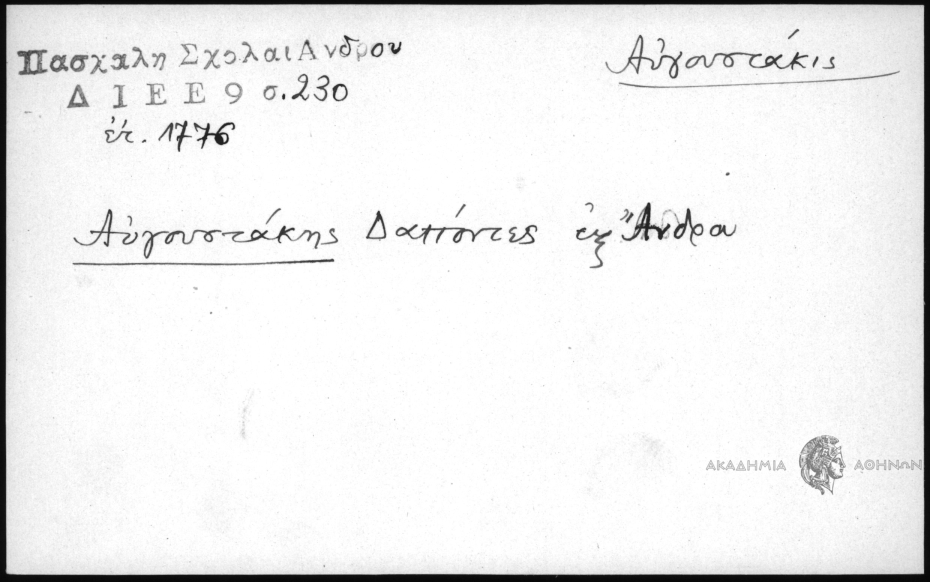 Πασχαλη Σχολαι Ανδρου
Αὐγουστάκις
Δ Ι Ε Ε 9 σ. 230
ἐτ. 1776
Αὐγουστάκης Δαπόντες ἐξ Ἄνδρου
ΑΚΑΔΗΜΙΑ ΑΘΗΝΩΝ